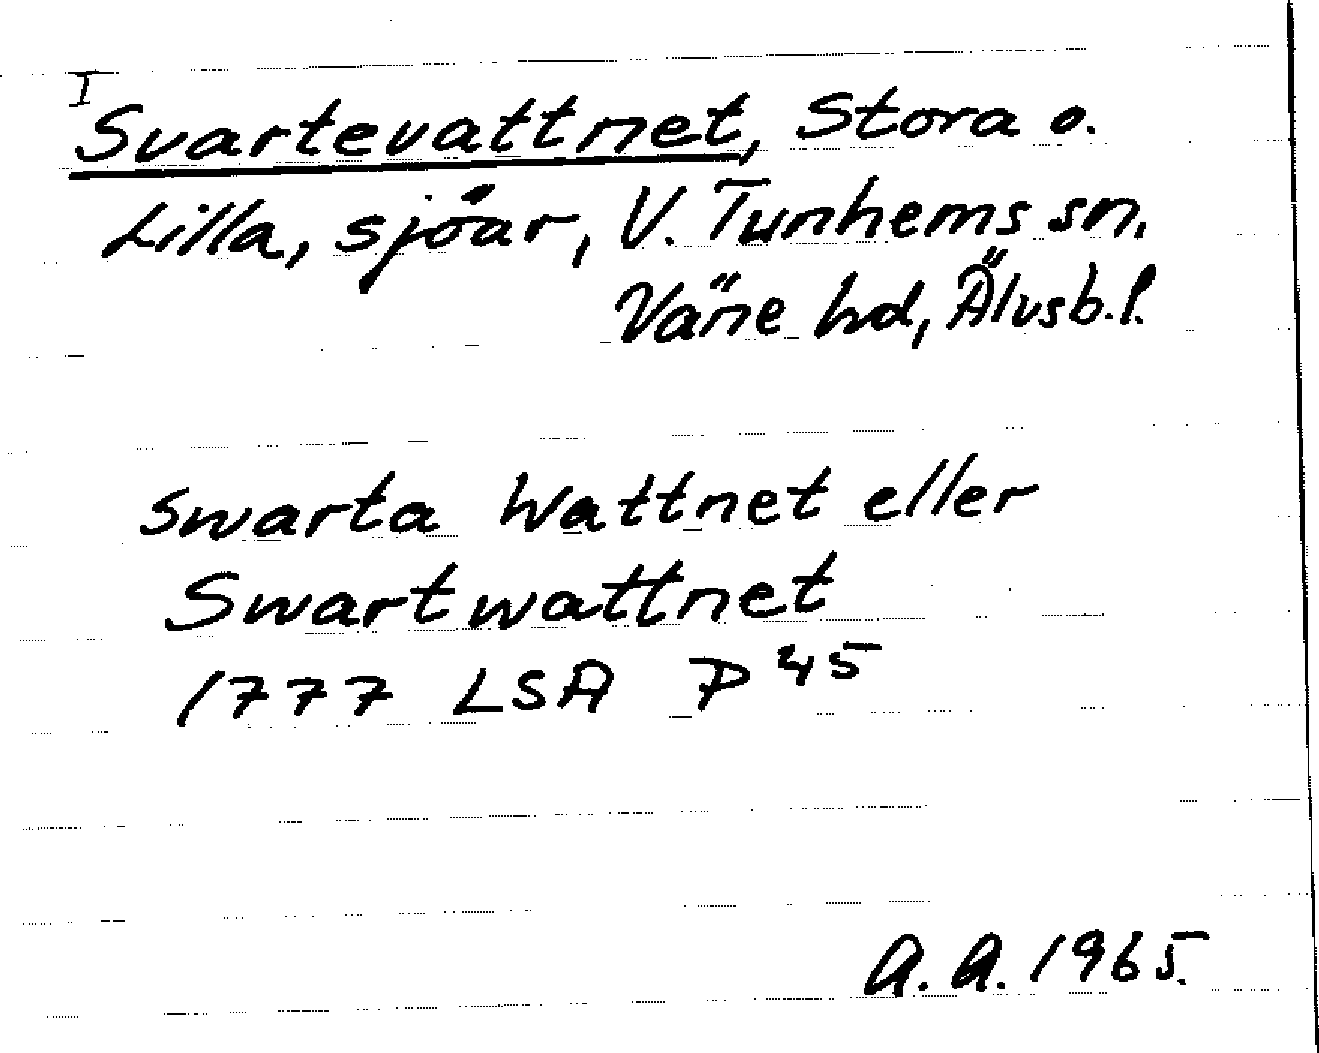 I
Svartevattnet, Stora o.
Lilla, sjöar, V. Tunhems sn.
Väne hd, Älvsb.l.
Swarta Wattnet eller
Swartwattnet
1777 LSA P 45
A.A. 1965.